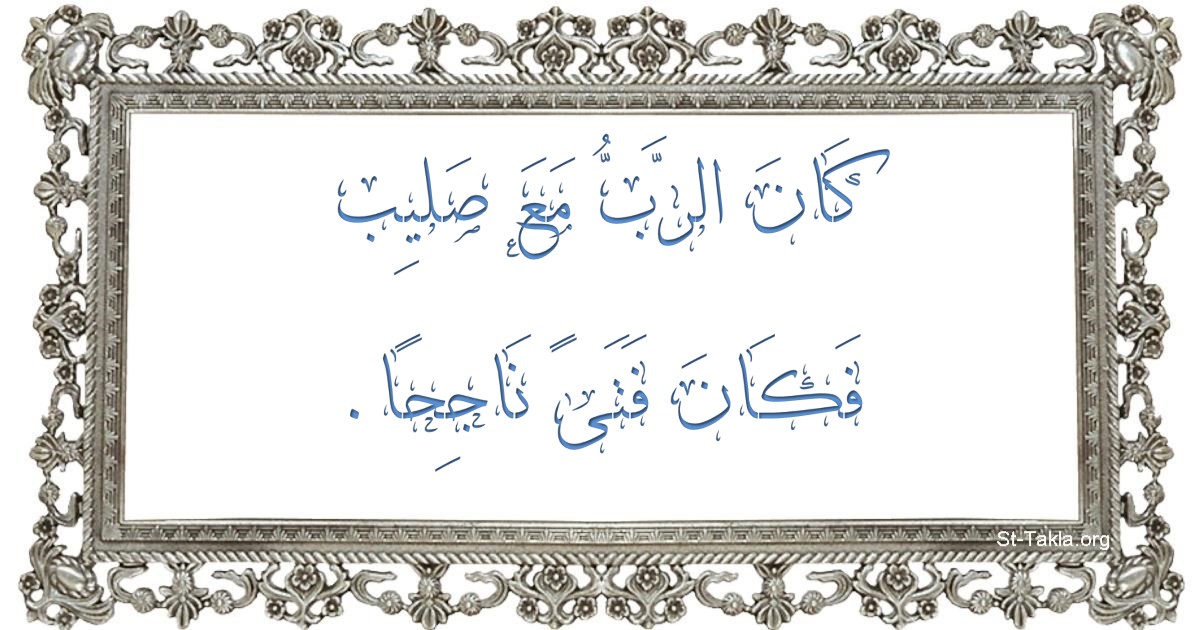 كَانَ الرَّبُّ مَعَ صَلِيبِ
فَكَانَ فَتَىً نَاجِحًا.
St-Takla.org